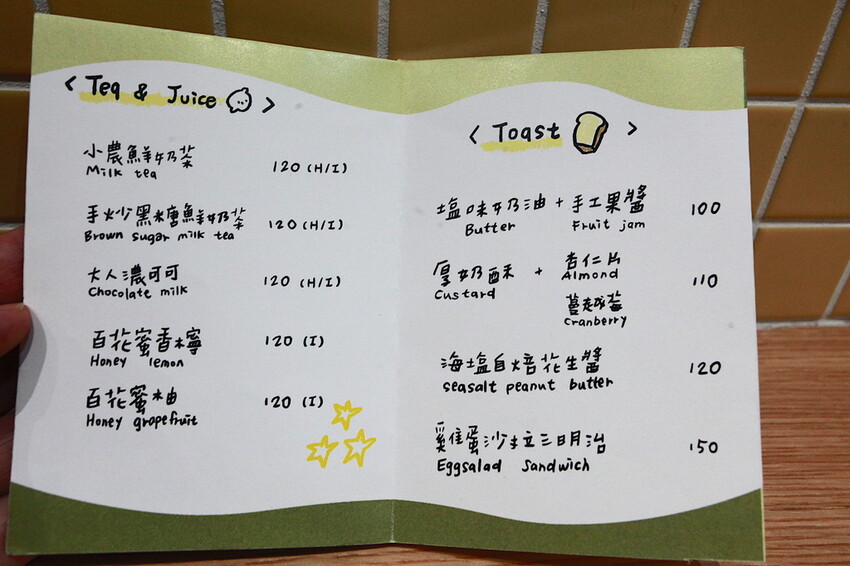 < Tea & Juice >
小農鮮奶茶 120 (H/I)
Milk tea
手炒黑糖鮮奶茶 120 (H/I)
Brown sugar milk tea
大人濃可可 120 (H/I)
Chocolate milk
百花蜜香檸 120 (I)
Honey lemon
百花蜜柚 120 (I)
Honey grapefruit
< Toast >
塩味奶油 + 手工果醬 100
Butter Fruit jam
厚奶酥 + 杏仁片 110
Custard Almond
蔓越莓
Cranberry
海塩自焙花生醬 120
seasalt peanut butter
雞蛋沙拉三明治 150
Eggsalad Sandwich